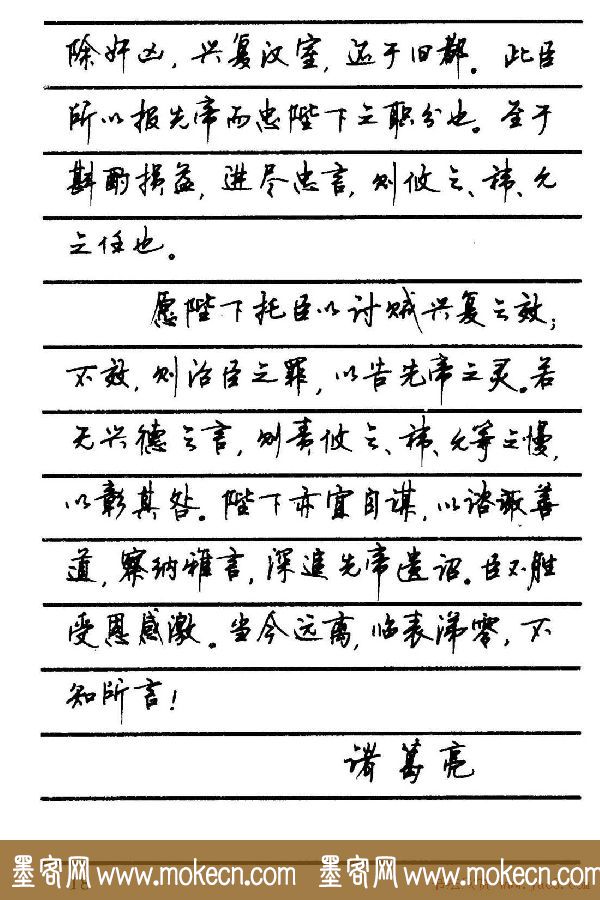 除奸凶，兴复汉室，还于旧都。此臣
所以报先帝而忠陛下之职分也。至于
斟酌损益，进尽忠言，则攸之、祎、允
之任也。
愿陛下托臣以讨贼兴复之效；
不效，则治臣之罪，以告先帝之灵。若
无兴德之言，则责攸之、祎、允等之慢，
以彰其咎。陛下亦宜自谋，以谘诹善
道，察纳雅言，深追先帝遗诏。臣不胜
受恩感激。当今远离，临表涕零，不
知所言！
诸葛亮
墨客网 www.mokecn.com 墨客网 www.mokecn.com